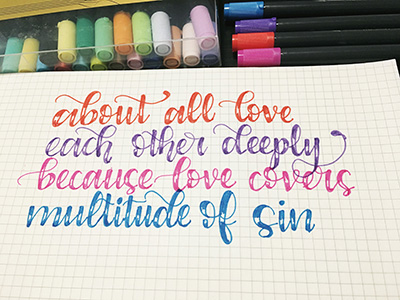 about all love
each other deeply
because love covers
multitude of sin